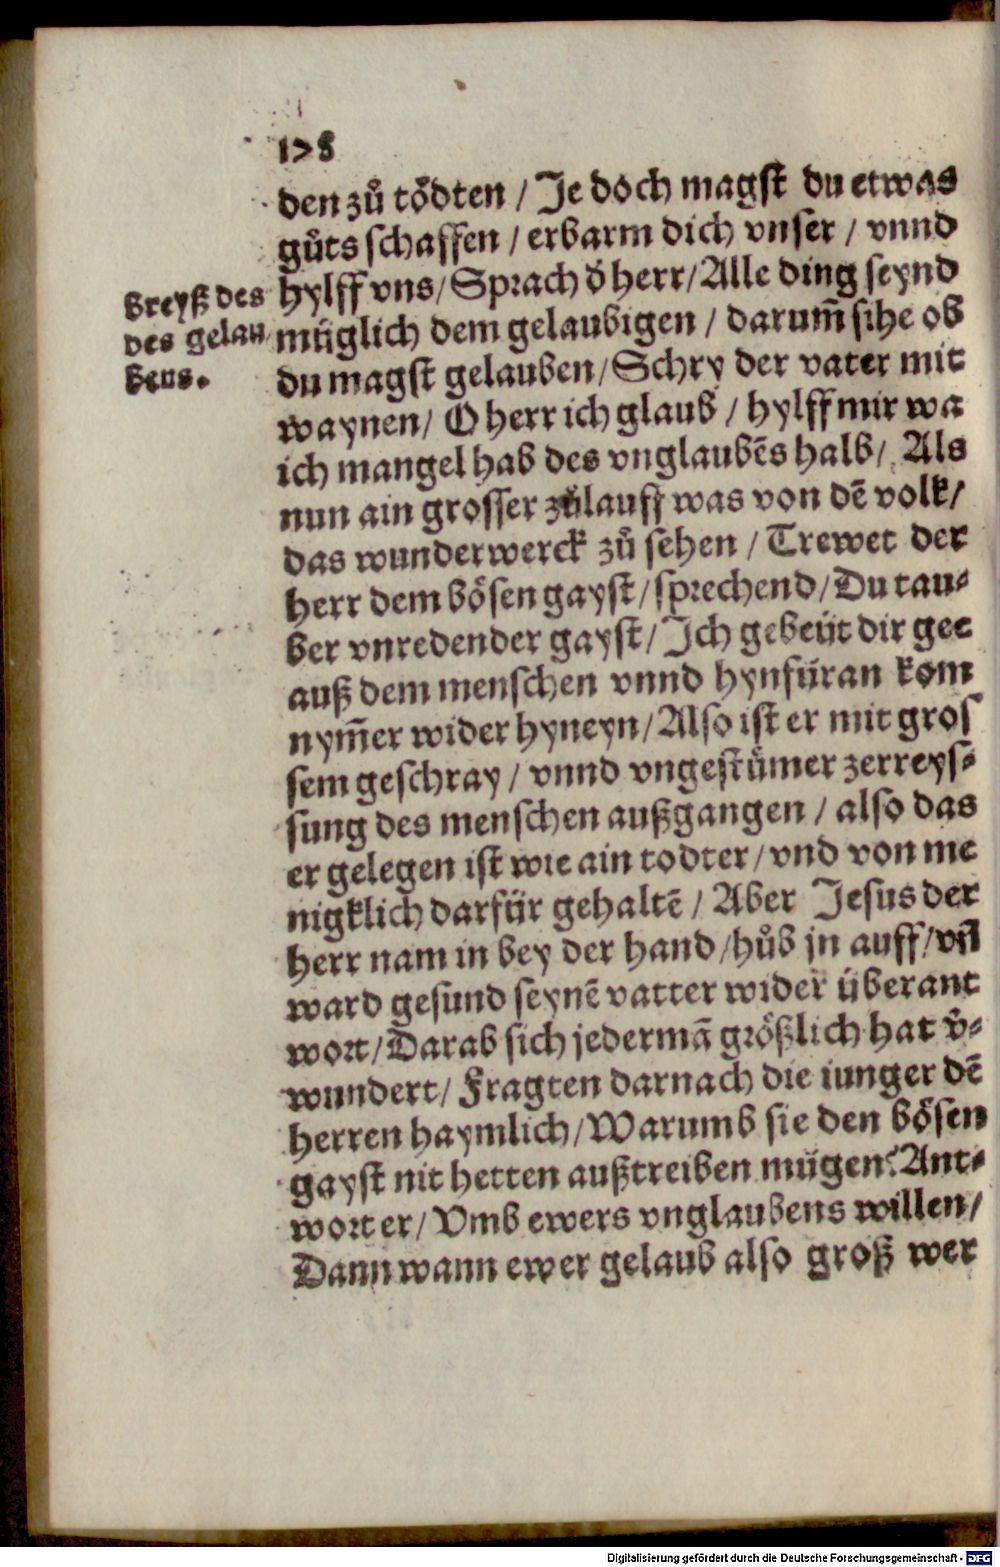 178
den zů tödten / Je doch magst du etwas
gůts schaffen / erbarm dich vnser / vnnd
hylff vns / Sprach d̕ herr / Alle ding seynd
müglich dem gelaubigen / darum̃ sihe ob
du magst gelauben / Schry der vater mit
waynen / O herr ich glaub / hylff mir wa
ich mangel hab des vnglaubẽs halb / Als
nun ain grosser zůlauff was von dẽ volk /
das wunderwerck zů sehen / Trewet der
herr dem bösen gayst / sprechend / Du tau⸗
ber vnredender gayst / Ich gebeüt dir gee
auß dem menschen vnnd hynfüran kom
nym̃er wider hyneyn / Also ist er mit gros
sem geschray / vnnd vngestümer zerreys⸗
sung des menschen außgangen / also das
er gelegen ist wie ain todter / vnd von me
nigklich darfür gehaltẽ / Aber Jesus der
herr nam in bey der hand / hůb jn auff / vñ
ward gesund seynẽ vatter wider überant
wort / Darab sich jedermã größlich hat v̕⸗
wundert / Fragten darnach die iunger dẽ
herren haymlich / Warumb sie den bösen
gayst nit hetten außtreiben mügen? Ant⸗
wort er / Vmb ewers vnglaubens willen /
Dann wann ewer gelaub also groß wer
Breyß des
des gelau
bens.
Digitalisierung gefördert durch die Deutsche Forschungsgemeinschaft - DFG